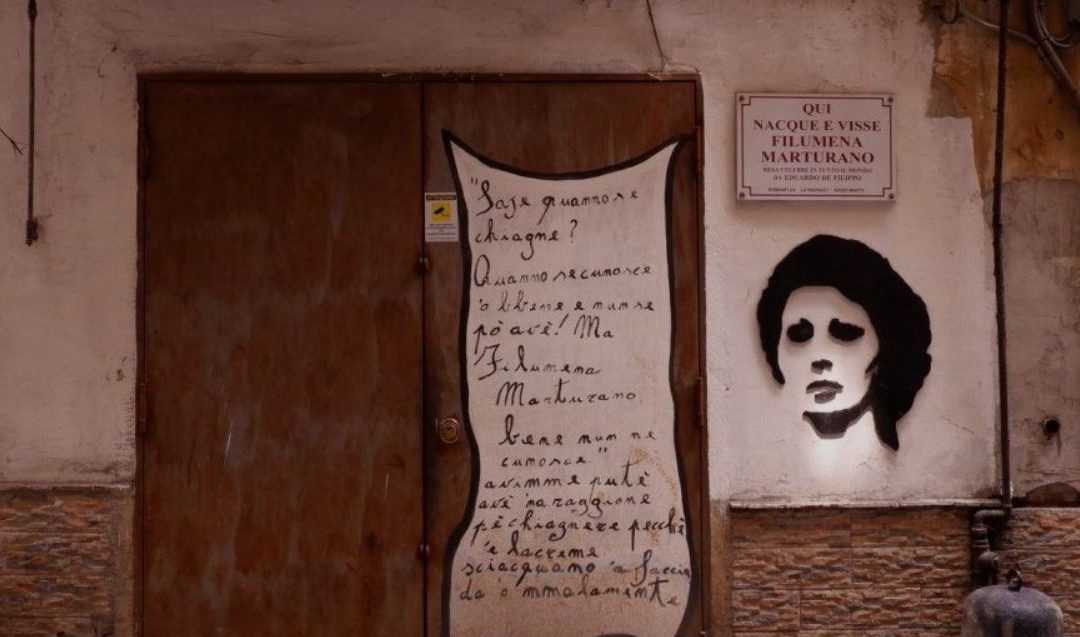 "Saje quanno se
chiagne?
Quanno se cunosce
'o bbene e nun se
pò avè! Ma
Filumena
Marturano
bene nun ne
cunosce"
avimme putè
avè 'na raggione
pè chiagnere pecchè
'e lacreme
sciacquano 'a faccia
da 'o 'mmalamente
QUI
NACQUE E VISSE
FILUMENA
MARTURANO
RESA CELEBRE IN TUTTO IL MONDO
DA EDUARDO DE FILIPPO